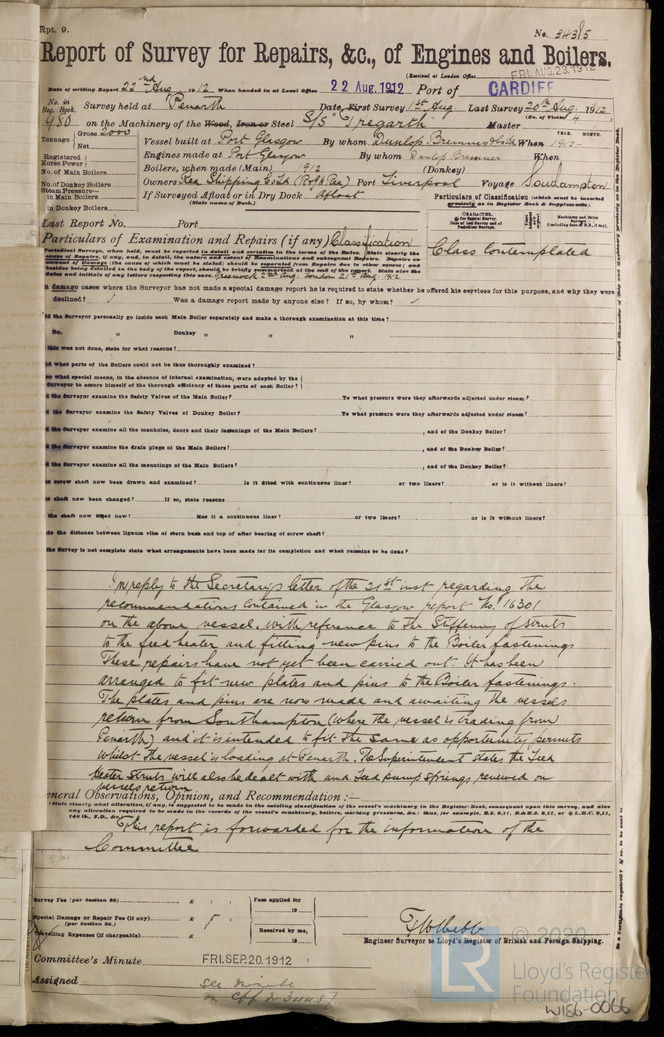 Rpt. 9.
No. 34385
Report of Survey for Repairs, &c., of Engines and Boilers.
(Received at London Office
FRI. AUG. 23. 1912
Date of writing Report 22nd Aug 1912 When handed in at Local Office 22 Aug. 1912 Port of CARDIFF
No. in Reg. Book. Survey held at Penarth Date, First Survey 1st Aug. Last Survey 20th Aug. 1912
(No. of Visits 4
980 on the Machinery of the Wood, Iron or Steel S/S "Tregarth" Master
Tonnage Gross 2000 Net
Vessel built at Port Glasgow By whom Dunlop Bremner & Co Ld When 1912
YEAR. MONTH.
Engines made at Port Glasgow By whom Dunlop Bremner When
Registered Horse Power
Boilers, when made (Main) 1912 (Donkey)
No. of Main Boilers
No. of Donkey Boilers
Owners Port Liverpool Voyage Southampton
Steam Pressure in Main Boilers
in Donkey Boilers
If Surveyed Afloat or in Dry Dock Afloat
(State name of Dock.)
Particulars of Classification (which must be inserted precisely as in Register Book & Supplements).
Last Report No. Port
Particulars of Examination and Repairs (if any) Classification
Class Contemplated
Periodical Surveys, when held, must be reported in detail and seriatim in the terms of the Rules. State clearly the
cause of Repairs, if any, and, in detail, the nature and extent of Examinations and subsequent Repairs. Repairs on
account of Damage (the cause of which must be stated) should be separated from Repairs due to other causes; and
besides being detailed in the body of the report, should be briefly summarised at the end of the report. State also the
dates and initials of any letters respecting this case. Greenock 2nd Aug London 21st Aug 1912
In damage cases where the Surveyor has not made a special damage report he is required to state whether he offered his services for this purpose, and why they were
declined? Was a damage report made by anyone else? If so, by whom?
the Surveyor personally go inside each Main Boiler separately and make a thorough examination at this time?
Do. " Donkey " " "
this was not done, state for what reasons?
what parts of the Boilers could not be thus thoroughly examined?
what special means, in the absence of internal examination, were adopted by the
Surveyor to assure himself of the thorough efficiency of those parts of each Boiler?
the Surveyor examine the Safety Valves of the Main Boiler? To what pressure were they afterwards adjusted under steam?
the Surveyor examine the Safety Valves of Donkey Boiler? To what pressure were they afterwards adjusted under steam?
the Surveyor examine all the manholes, doors and their fastenings of the Main Boilers? , and of the Donkey Boiler?
the Surveyor examine the drain plugs of the Main Boilers? , and of the Donkey Boiler?
the Surveyor examine all the mountings of the Main Boilers? , and of the Donkey Boiler?
screw shaft now been drawn and examined? Is it fitted with continuous liner? or two liners? or is it without liners?
shaft now been changed? If so, state reasons
the shaft now fitted new? Has it a continuous liner? or two liners? or is it without liners?
the distance between lignum vitæ of stern bush and top of after bearing of screw shaft?
the Survey is not complete state what arrangements have been made for its completion and what remains to be done?
In reply to the Secretary's letter of the 21st inst regarding the
recommendations contained in the Glasgow report No. 16301
on the above vessel, with reference to the Stiffening of struts
to the feed heater and fitting new pins to the Boiler fastenings
These repairs have not yet been carried out. It has been
arranged to fit new plates and pins to the Boiler fastenings.
The plates and pins are now made and awaiting the vessels
return from Southampton (where the vessel is trading from
Penarth) and it is intended to fit the same as opportunity permits
whilst the vessel is loading at Penarth. The Superintendent states the Feed
Heater Struts will also be dealt with and Feed pump springs renewed on
vessels return
General Observations, Opinion, and Recommendation:—
State clearly what alteration, if any, is suggested to be made in the existing classification of the vessel's machinery in the Register Book, consequent upon this survey, and also
any alteration required to be made in the records of the vessel's machinery, boilers, working pressures, &c.
This report is forwarded for the information of the
Committee
Survey Fee (per Section 28) £ Fees applied for
19
Special Damage or Repair Fee (if any) £
(per Section 28.)
Travelling Expenses (if chargeable) £ Received by me,
19
Engineer Surveyor to Lloyd's Register of British and Foreign Shipping.
Committee's Minute FRI. SEP. 20. 1912
Assigned See Minute
© 2020
LR
Lloyd's Register
Foundation
W186-0066